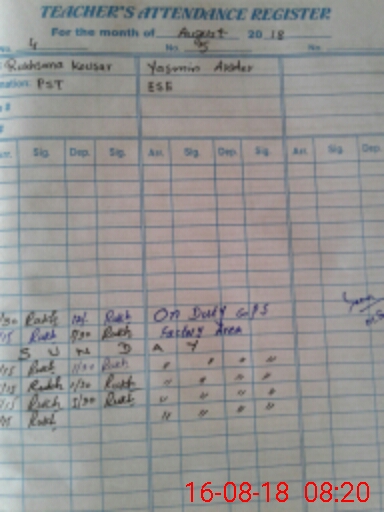 TEACHER'S ATTENDANCE REGISTER
For the month of August 2018
No. 4 No. 5 No.
Rukhsana Kousar Yasmin Akhter
nation: PST ESE
Arr. Sig. Dep. Sig. Arr. Sig. Dep. Sig. Arr. Sig. Dep.
/30 Rukh Rukh On Duty GPS
/15 Rukh 1/30 Rukh Factory Area
S U N D A Y
/15 Rukh 1/30 Rukh " " " "
/15 Rukh 1/30 Rukh " " " "
/15 Rukh 1/30 Rukh " " " "
Rukh " " " "
16-08-18 08:20